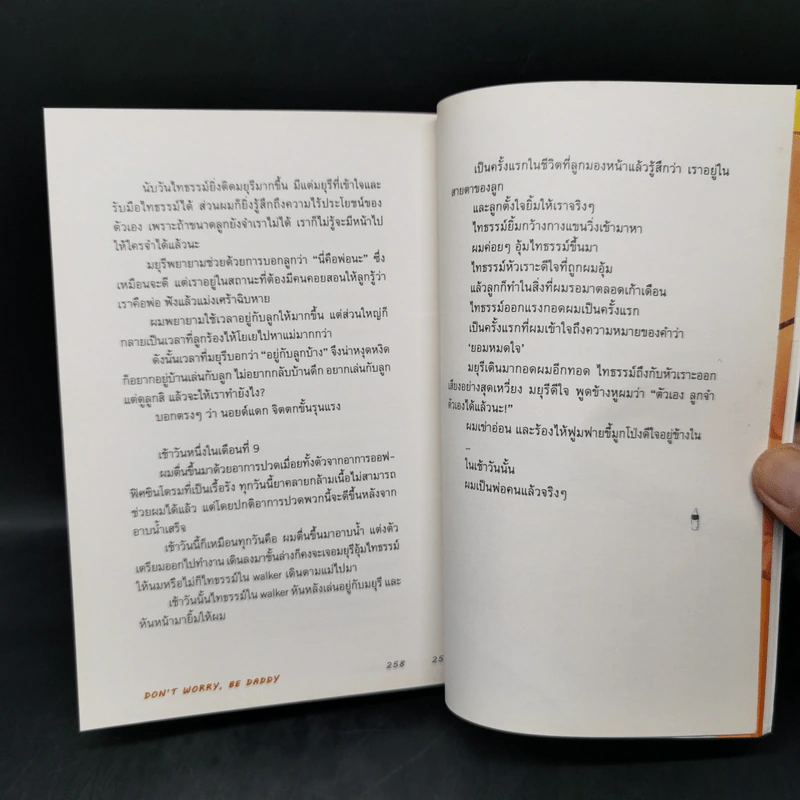 นับวันไทธรรม์ยิ่งติดมยุรีมากขึ้น มีแต่มยุรีที่เข้าใจและ
รับมือไทธรรม์ได้ ส่วนผมก็ยิ่งรู้สึกถึงความไร้ประโยชน์ของ
ตัวเอง เพราะถ้าขนาดลูกยังจำเราไม่ได้ เราก็ไม่รู้จะมีหน้าไป
ให้ใครจำได้แล้วนะ
มยุรีพยายามช่วยด้วยการบอกลูกว่า “นี่คือพ่อนะ” ซึ่ง
เหมือนจะดี แต่เราอยู่ในสถานะที่ต้องมีคนคอยสอนให้ลูกรู้ว่า
เราคือพ่อ ฟังแล้วแม่งเศร้าฉิบหาย
ผมพยายามใช้เวลาอยู่กับลูกให้มากขึ้น แต่ส่วนใหญ่ก็
กลายเป็นเวลาที่ลูกร้องไห้โยเยไปหาแม่มากกว่า
ดังนั้นเวลาที่มยุรีบอกว่า “อยู่กับลูกบ้าง” จึงน่าหงุดหงิด
ก็อยากอยู่บ้านเล่นกับลูก ไม่อยากกลับบ้านดึก อยากเล่นกับลูก
แต่ดูลูกสิ แล้วจะให้เราทำยังไง?
บอกตรงๆ ว่า นอยด์แดก จิตตกขั้นรุนแรง
เช้าวันหนึ่งในเดือนที่ 9
ผมตื่นขึ้นมาด้วยอาการปวดเมื่อยทั้งตัวจากอาการออฟ-
ฟิศซินโดรมที่เป็นเรื้อรัง ทุกวันนี้ยาคลายกล้ามเนื้อไม่สามารถ
ช่วยผมได้แล้ว แต่โดยปกติอาการปวดพวกนี้จะดีขึ้นหลังจาก
อาบน้ำเสร็จ
เช้าวันนี้ก็เหมือนทุกวันคือ ผมตื่นขึ้นมาอาบน้ำ แต่งตัว
เตรียมออกไปทำงาน เดินลงมาชั้นล่างก็คงจะเจอมยุรีอุ้มไทธรรม์
ให้นมหรือไม่ก็ไทธรรม์ใน walker เดินตามแม่ไปมา
เช้าวันนั้นไทธรรม์ใน walker หันหลังเล่นอยู่กับมยุรี และ
หันหน้ามายิ้มให้ผม
258
DON'T WORRY, BE DADDY
25
เป็นครั้งแรกในชีวิตที่ลูกมองหน้าแล้วรู้สึกว่า เราอยู่ใน
สายตาของลูก
และลูกตั้งใจยิ้มให้เราจริงๆ
ไทธรรม์ยิ้มกว้างกางแขนวิ่งเข้ามาหา
ผมค่อยๆ อุ้มไทธรรม์ขึ้นมา
ไทธรรม์หัวเราะดีใจที่ถูกผมอุ้ม
แล้วลูกก็ทำในสิ่งที่ผมรอมาตลอดเก้าเดือน
ไทธรรม์ออกแรงกอดผมเป็นครั้งแรก
เป็นครั้งแรกที่ผมเข้าใจถึงความหมายของคำว่า
‘ยอมหมดใจ’
มยุรีเดินมากอดผมอีกทอด ไทธรรม์ถึงกับหัวเราะออก
เสียงอย่างสุดเหวี่ยง มยุรีดีใจ พูดข้างหูผมว่า “ตัวเอง ลูกจำ
ตัวเองได้แล้วนะ!”
ผมเข่าอ่อน และร้องไห้ฟูมฟายขี้มูกโป่งดีใจอยู่ข้างใน
–
ในเช้าวันนั้น
ผมเป็นพ่อคนแล้วจริงๆ